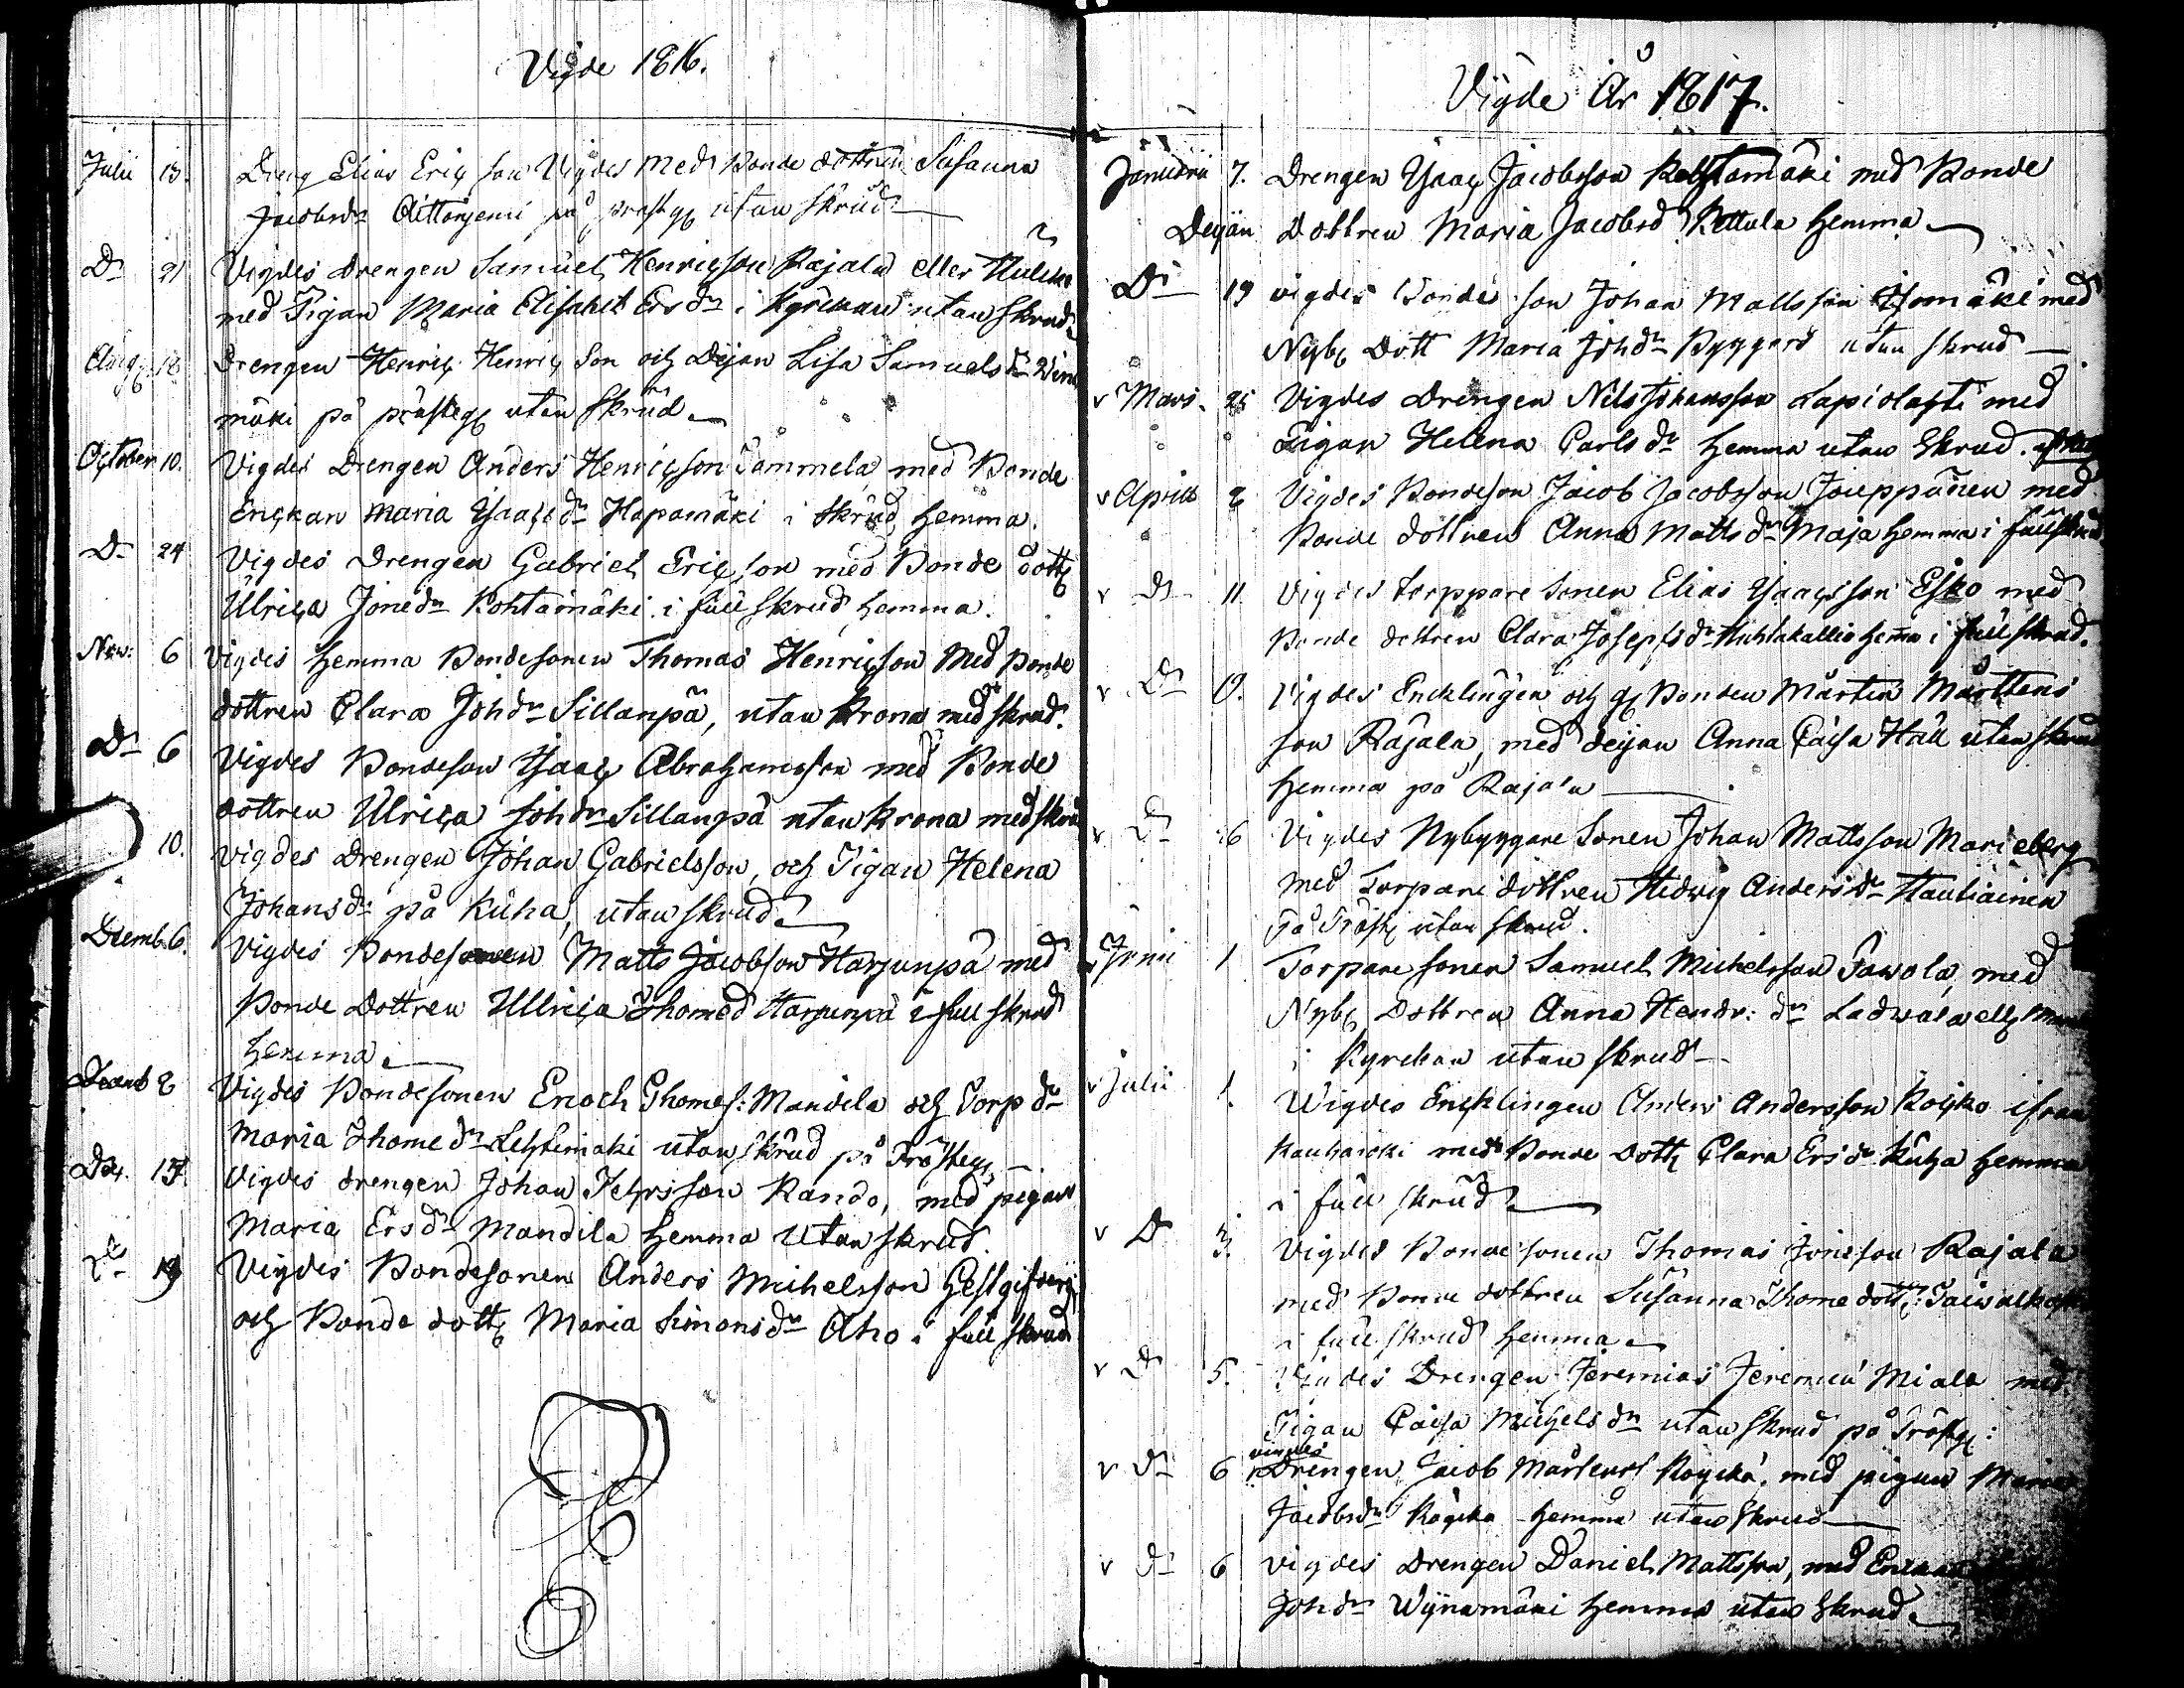 Vigde 1816.
Julii 13. Dreng Elias Ericsson Vigdes med Bonde dottren Susanna
Jacobsdr Aittonjemi på prestg: utan skrud
Do 21 Vigdes Drengen Samuel Henricsson Rajala eller
med Pigan Maria Elisabet Ersdr i Kyrckan utan skrud
Aug: 18 Drengen Henric Henricson och Deijan Lisa Samuelsdr
mäki på prästeg: utan skrud
October 10. Vigdes Drengen Anders Henricson Sammela, med Bonde
Enckan Maria Isaacsdr Hapamäki i skrud, hemma.
Do 24 Vigdes Drengen Gabriel Ericsson med Bonde dott:
Ulrica Jonedr Kohtamäki i full skrud, hemma.
Nov: 6 Vigdes hemma Bondesonen Thomas Henricson Med Bonde
dottren Clara Johdr Sillanpä, utan Krona med skrud.
Do 6 Vigdes Bondeson Isaac Abrahamsson med Bonde
dottren Ulrica Johdr Sillanpä utan krona med skrud
10. Vigdes Drengen Johan Gabrielsson, och Pigan Helena
Johansdr på Kuha, utan skrud.
Decemb. 6. Vigdes Bondesonen Matts Jacobson Harjunpä med
Bonde Dottren Ullrica Thomed Harjunpä i full skrud
hemma.
Decemb 8 Vigdes Bondesonen Enoch Thomes: Mandila och Torp dr
Maria Thomedr Lehtimäki utan skrud på Prästeg:
Do. 17. Vigdes drengen Johan Pehrsson Rando, med pigan
Maria Ersdr Mandila hemma utan skrud.
Do 19 Vigdes Bondesonen Anders Michelsson Gestgifveri
och Bonde dott: Maria Simonsdr Aho i full skrud
Vigde År 1817.
Januarii 7. Drengen Isaac Jacobsson med Bonde
Dottren Maria Jacobsd Kettula hemma
Do 19 vigdes Bonde son Johan Mattsson Isomäki med
Nyb: Dott Maria Johdr Byggars utan skrud
v Mars. 25 Vigdes Drengen Nils Johansson Lapiolahti med
Pigan Helena Carlsdr hemma utan Skrud.
v Aprill 8 Vigdes Bondeson Jacob Jacobsson Joeppänen med
Bonde dottren Anna Mattsdr Maja hemma i full skrud
v Do 11 Vigdes torppare Sonen Elias Isaacsson Esko med
Bonde dottren Clara Josephsdr Huhtakallio hemma i full skrud.
v Do Vigdes Encklingen och g: Bonden Mårten Mårttens
son Rajala, med deijan Anna Caisa Häll utan skrud
hemma på Rajala
v Do 6 Vigdes Nybyggare Sonen Johan Mattsson Marieberg
med Torpare dottren Hedvig Andersdr Hauhiainen
på Präst: utan skrud.
v Junii 1 Torpare sonen Samuel Michelsson Sawola, med
Nyb: Dottren Anna Hendr: dr Ladwala
i Kyrckan utan skrud
v Julii 1. Wigdes Encklingen Anders Andersson Koisko ifrån
med Bonde Dott: Clara Ersdr Kuha hemma
i full skrud
v Do 3. Vigdes Bondesonen Thomas Joneson Rajala
med Bonde dottren Susanna Thome dott:
i full skrud hemma
v Do 5. Vigdes Drengen Jeremias Jeremiæ Miala med
Pigan Caisa Michelsdr utan skrud på Prästg:
vigdes
v Do 6 Drengen Jacob Mårtens Köyckä. med pigan Maria
Jacobsdr Köycka hemma utan skrud
v Do 6 Vigdes Drengen Daniel Mattsson, med
Johdr Wijnamäki hemma utan skrud